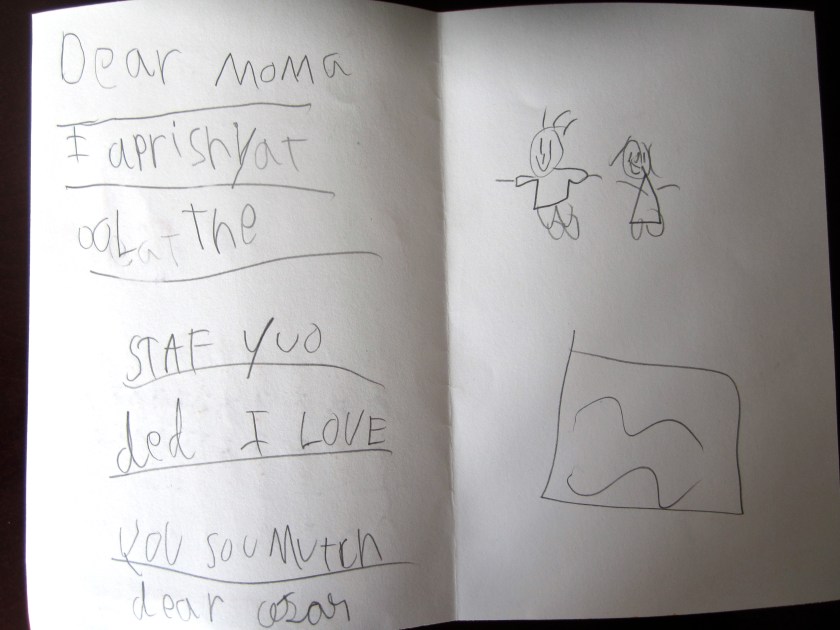 Dear MOMA
I aprishyat
ooL the
STAF YUO
ded I LOVE
YOU sou MUtch
dear